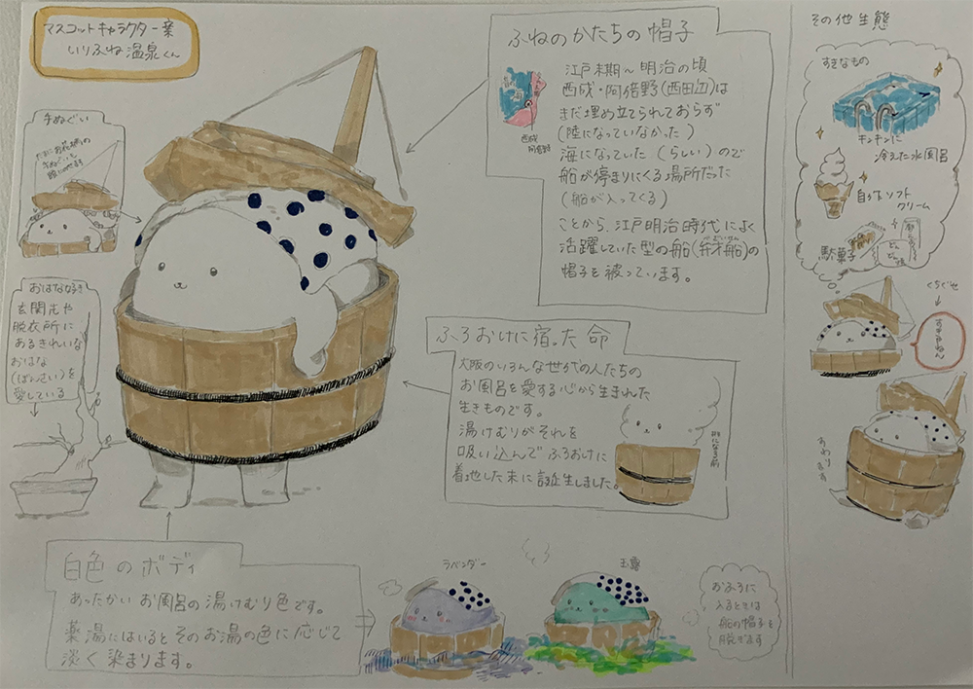 マスコットキャラクター案
いりふね温泉くん
手ぬぐい
おはな好き
玄関先や
脱衣所に
あるきれいな
おはな
(ぼんさい)を
愛している
ふねのかたちの帽子
江戸末期～明治の頃
西成・阿倍野(西田辺)は
まだ埋め立てられておらず
(陸になっていなかった)
海になっていた(らしい)ので
船が停まりにくる場所だった
(船が入ってくる)
ことから、江戸明治時代によく
活躍していた型の船(弁才船)の
帽子を被っています。
西成
阿倍野
ふろおけに宿った命
大阪のいろんな世代の人たちの
お風呂を愛する心から生まれた
生きものです。
湯けむりがそれを
吸い込んでふろおけに
着地した末に誕生しました。
白色のボディ
あったかいお風呂の湯けむり色です。
薬湯にはいるとそのお湯の色に応じて
淡く染まります。
ラベンダー
おふろに
入るときは
船の帽子を
脱ぎます
その他生態
すきなもの
キンキンに
冷えた水風呂
自作ソフト
クリーム
駄菓子
くちぐせ
すきやねん
すわります